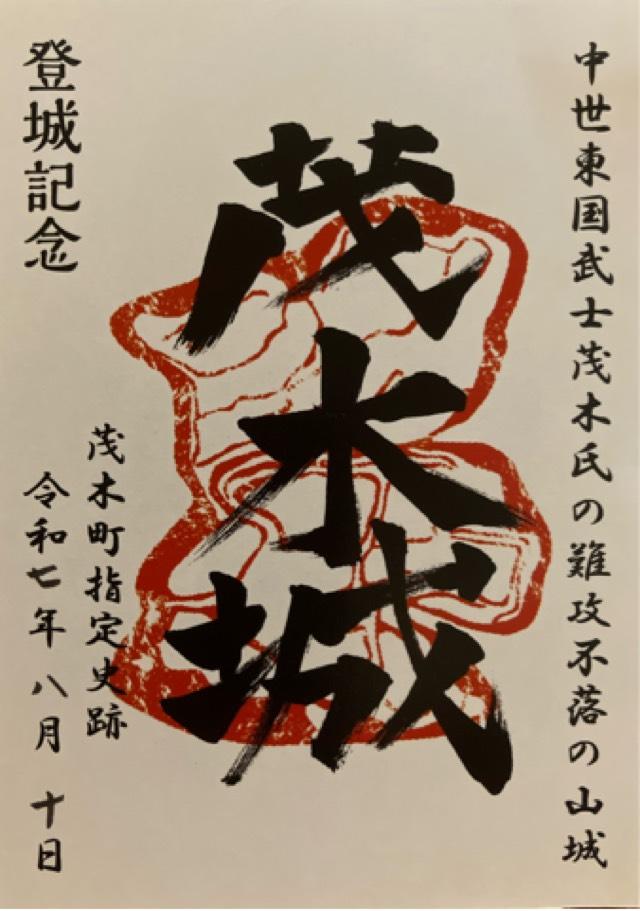 中世東国武士茂木氏の難攻不落の山城
茂木城
登城記念
茂木町指定史跡
令和七年八月十日